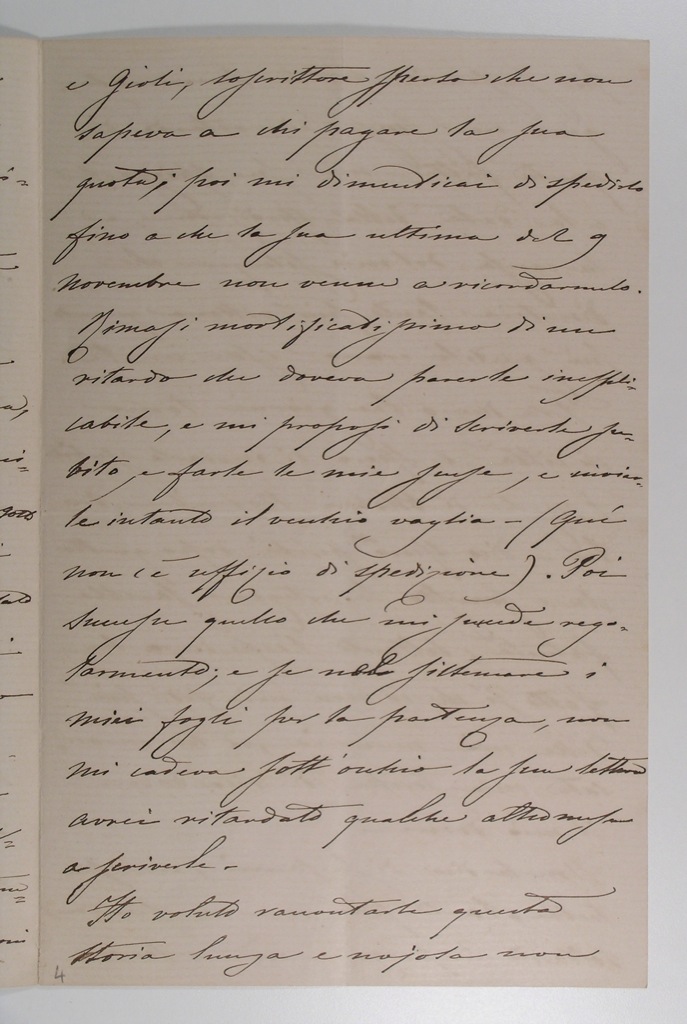 e Gioli, soscrittore sperso che non
sapeva a chi pagare la sua
quota; poi mi dimenticai di spedirlo
fino a che la sua ultima del 9
novembre non venne a ricordarmelo.
Rimasi mortificatissimo di un
ritardo che doveva parerle inespli-
cabile, e mi proposi di scriverle su-
bito, e farle le mie scuse, e inviar-
le intanto il vecchio vaglia - (qui
non c'è uffizio di spedizione). Poi
successe quello che mi succede rego-
larmente; e se nel sistemare i
miei fogli per la partenza, non
mi cadeva sott'occhio la sua lettera
avrei ritardato qualche altro mese
a scriverle.
Ho voluto raccontarle questa
storia lunga e nojosa non
4